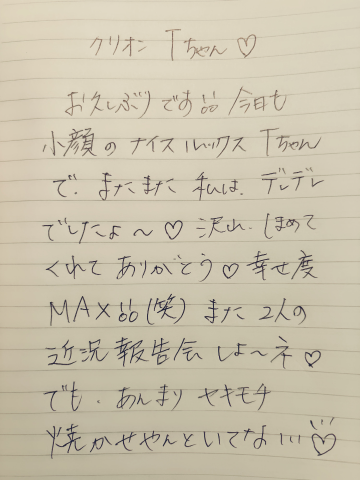 クリオン Tちゃん♡
お久しぶりです!!! 今日も
小顔の ナイスルックス Tちゃん
で、またまた 私は、デレデレ
でしたよ〜♡ 沢山、ほめて
くれて ありがとう♡ 幸せ度
MAX!!! (笑) また 2人の
近況報告会 しよ〜ネ♡
でも、あんまり ヤキモチ
焼かせやんといてな!!!♡